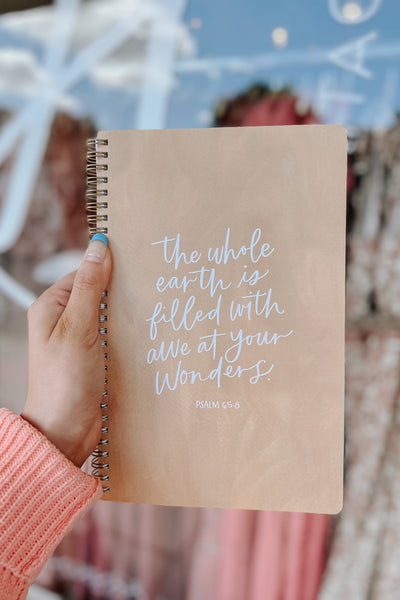 The whole
earth is
filled with
awe at your
Wonders.
PSALM 65:8